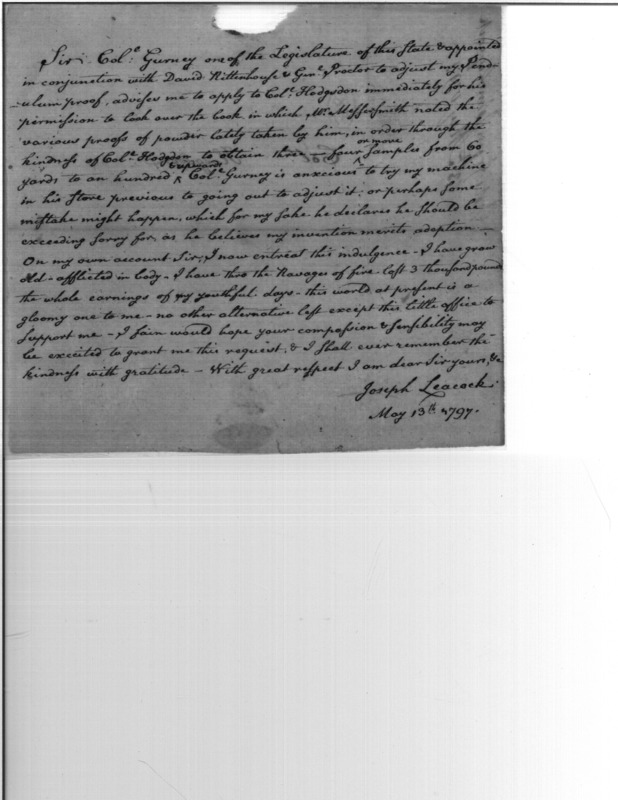 Sir, Col.º Gurney one of the Legislature of this State & appointed
in conjunction with David Rittenhouse & Genl. Proctor to adjust my Pend-
-ulum proof, advises me to apply to Col.º Hodgsdon immediately for his
permission to look over the book in which Mr. Messersmith noted the
various proofs of powder lately taken by him, in order through the
kindness of Col.º Hodgdon to obtain three – four or more samples from 60
yards to an hundred & upwards Col.º Gurney is anxcious to try my machine
in his Store previous to going out to adjust it: or perhaps some
mistake might happen, which for my sake he declares he should be
exceeding sorry for, as he believes my invention merits adoption –
On my own account Sir, I now entreat this indulgence – I have grow
Old – afflicted in body – I have thro the Ravages of fire lost 3 thousand pounds
the whole earnings of my youthful days – this world at present is a
gloomy one to me – no other alternative left except this little office to
support me – I fain would hope your compassion & sensibility may
be excited to grant me this request, & I shall ever remember the
kindness with gratitude – With great respect I am dear Sir yours, &c
Joseph Leacock.
May 13th 1797.